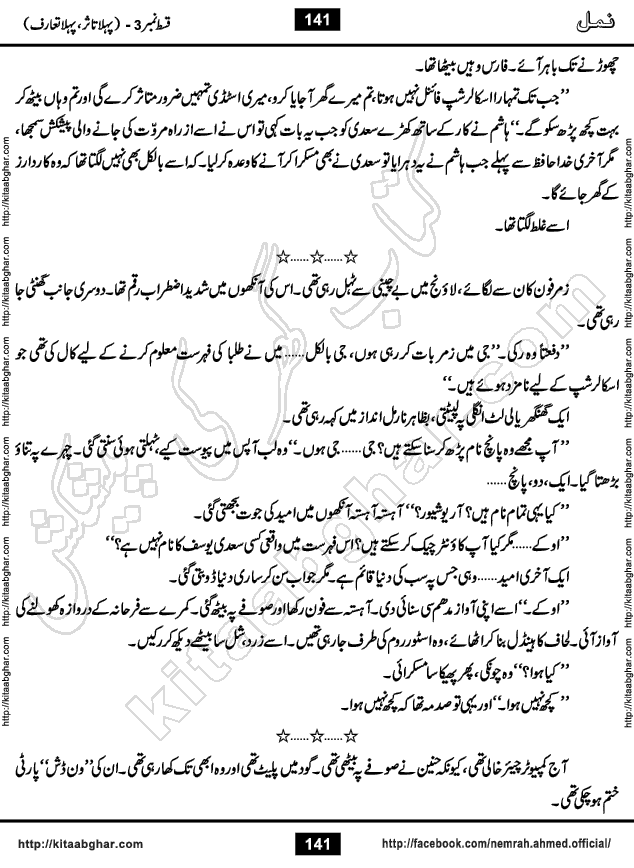 نمل
141
قسط نمبر 3 - (پہلا تاثر، پہلا تعارف)
چھوڑنے تک باہر آئے۔ فارس وہیں بیٹھا تھا۔
’’جب تک تمہارا اسکالر شپ فائنل نہیں ہوتا، تم میرے گھر آجایا کرو، میری اسٹڈی تمہیں ضرور متاثر کرے گی اور تم وہاں بیٹھ کر
بہت کچھ پڑھ سکو گے۔‘‘ ہاشم نے کار کے ساتھ کھڑے سعدی کو جب یہ بات کہی تو اس نے اسے از راہ مروّت کی جانے والی پیشکش سمجھا،
مگر آخری خدا حافظ سے پہلے جب ہاشم نے یہ دہرایا تو سعدی نے بھی مسکرا کر آنے کا وعدہ کر لیا۔ کہ اسے بالکل بھی نہیں لگتا تھا کہ وہ کاردارز
کے گھر جائے گا۔
اسے غلط لگتا تھا۔
☆......☆......☆
زمر فون کان سے لگائے، لاؤنج میں بے چینی سے ٹہل رہی تھی۔ اس کی آنکھوں میں شدید اضطراب رقم تھا۔ دوسری جانب گھنٹی جا
رہی تھی۔
’’دفعتاً وہ رکی۔ ’’جی میں زمر بات کر رہی ہوں، جی بالکل...... میں نے طلبا کی فہرست معلوم کرنے کے لیے کال کی تھی جو
اسکالر شپ کے لیے نامزد ہوئے ہیں۔‘‘
ایک گھنگھریالی لٹ انگلی پہ لپیٹتی، بظاہر نارمل انداز میں کہہ رہی تھی۔
’’آپ مجھے وہ پانچ نام پڑھ کر سنا سکتے ہیں؟ جی...... جی ہوں۔‘‘ وہ لب آپس میں پیوست کیے، ٹہلتی ہوئی سنتی گئی۔ چہرے پہ تناؤ
بڑھتا گیا۔ ایک، دو، پانچ......
’’کیا یہی تمام نام ہیں؟ آر یو شیور؟‘‘ آہستہ آہستہ آنکھوں میں امید کی جوت بجھتی گئی۔
’’اوکے...... مگر کیا آپ کاؤنٹر چیک کر سکتے ہیں؟ اس فہرست میں واقعی کسی سعدی یوسف کا نام نہیں ہے؟‘‘
ایک آخری امید...... وہی جس پہ سب کی دنیا قائم ہے۔ مگر جواب سن کر ساری دنیا ڈوبتی گئی۔
’’اوکے۔‘‘ اسے اپنی آواز مدھم سی سنائی دی۔ آہستہ سے فون رکھا اور صوفے پہ بیٹھ گئی۔ کمرے سے فرحانہ کے دروازہ کھولنے کی
آواز آئی۔ لحاف کا ہینڈل بنا کر اٹھائے، وہ اسٹور روم کی طرف جا رہی تھیں۔ اسے زرد، شل سا بیٹھے دیکھ کر رکیں۔
’’کیا ہوا؟‘‘ وہ چونکی، پھر پھیکا سا مسکرائی۔
’’کچھ نہیں ہوا۔‘‘ اور یہی تو صدمہ تھا کہ کچھ نہیں ہوا۔
☆......☆......☆
آج کمپیوٹر چیئر خالی تھی، کیونکہ حنین نے صوفے پہ بیٹھی تھی۔ گود میں پلیٹ تھی اور وہ ابھی تک کھا رہی تھی۔ ان کی ’’ون ڈش‘‘ پارٹی
ختم ہو چکی تھی۔
http://kitaabghar.com
http://kitaabghar.com
http://kitaabghar.com
http://kitaabghar.com
http://kitaabghar.com
http://kitaabghar.com
http://kitaabghar.com
http://kitaabghar.com
http://kitaabghar.com
http://kitaabghar.com
http://kitaabghar.com
http://kitaabghar.com
کتاب گھر کی پیشکش
kitaabghar.com
http://kitaabghar.com
141
http://facebook.com/nemrah.ahmed.official/